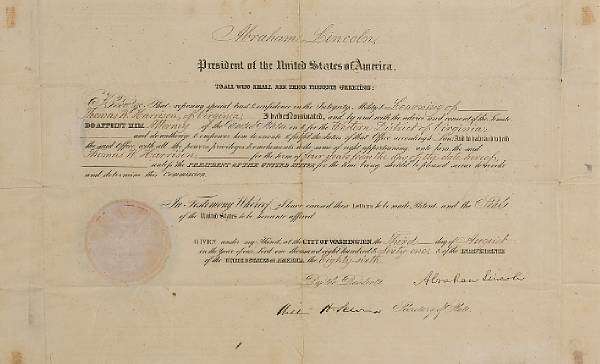 Abraham Lincoln,
President of the United States of America.
TO ALL WHO SHALL SEE THESE PRESENTS GREETING:
That reposing special trust & confidence in the Integrity, Ability & Learning of
Thomas W. Harrison, of Virginia, I have Nominated, and by and with the advice and consent of the Senate
DO APPOINT HIM Attorney of the United States in & for the Western District of Virginia
and do authorize & empower him to execute & fulfil the duties of that Office according to Law; And to have and to hold
the said Office, with all the powers, privileges & emoluments to the same of right appertaining unto him the said
Thomas W. Harrison, for the term of four years from the day of the date hereof,
the PRESIDENT OF THE UNITED STATES for the time being should be pleased sooner to revoke
and determine this Commission.
In Testimony Whereof, I have caused these Letters to be made Patent and the Seal
of the United States to be hereunto affixed
GIVEN under my Hand, at the CITY OF WASHINGTON, the Third day of August
in the Year of our Lord one thousand eight hundred & sixty one; & of the INDEPENDENCE
of the UNITED STATES OF AMERICA, the Eighty sixth
By the President Abraham Lincoln
William H Seward Secretary of State.